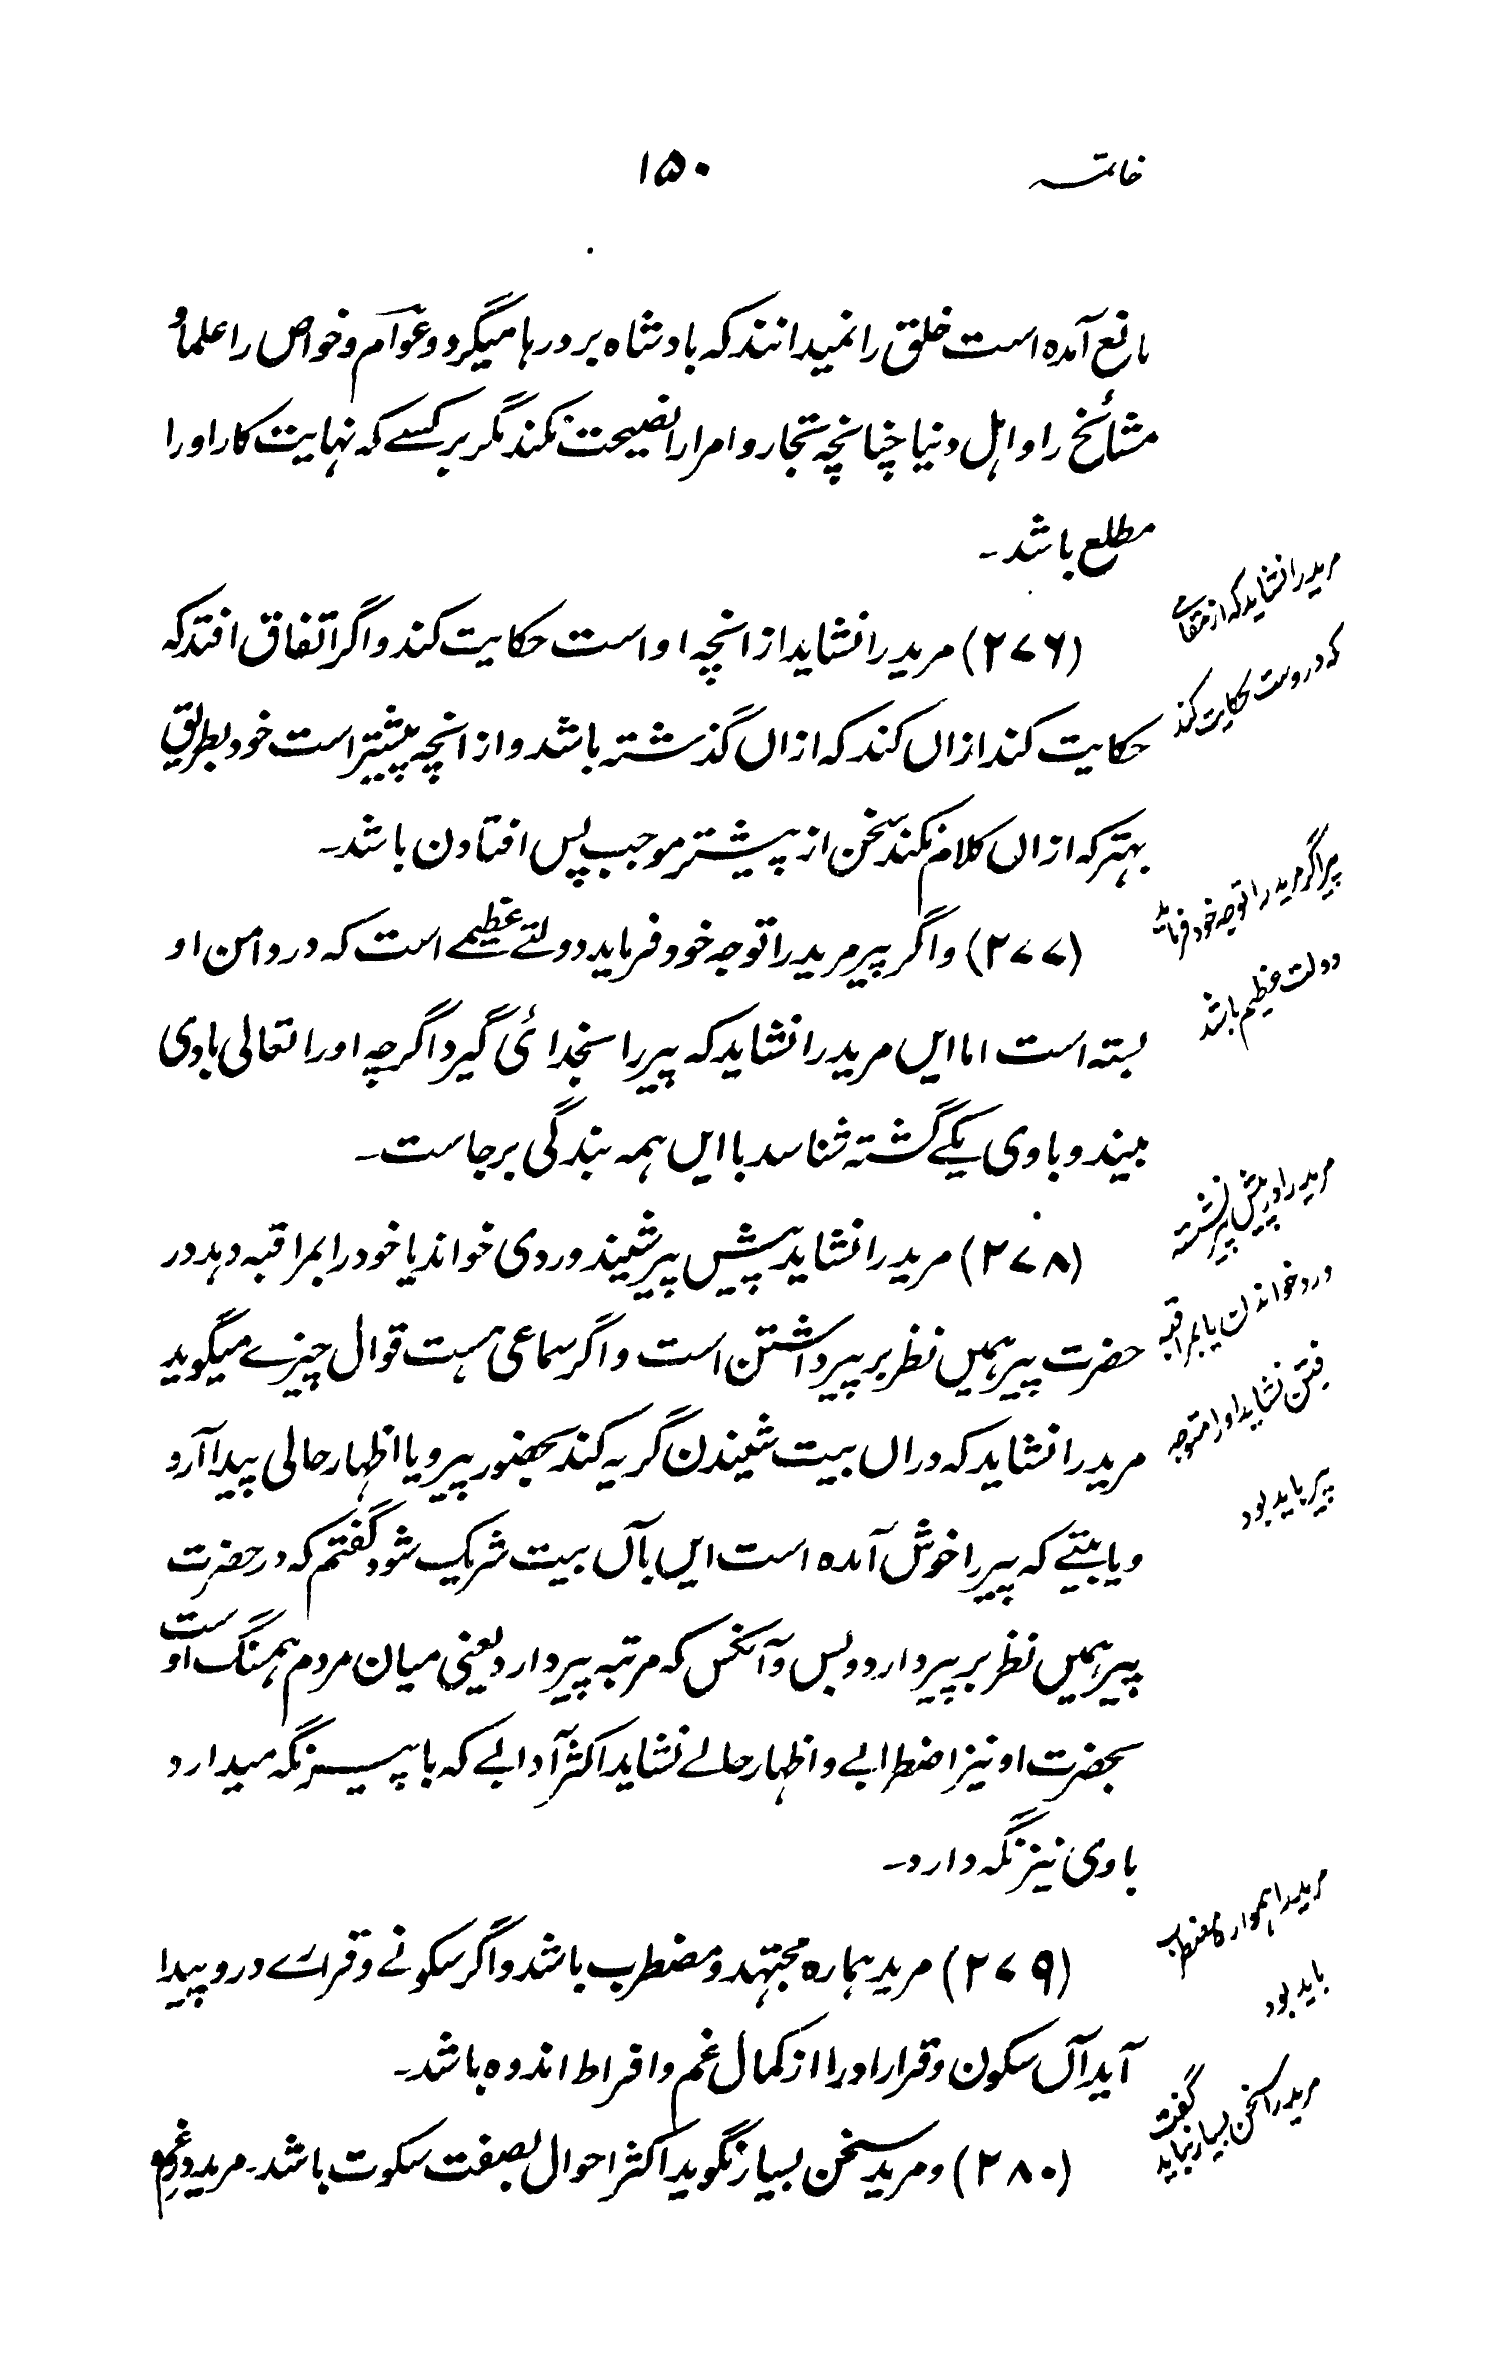 خاتمہ ۱۵۰
مانع آمده است خلق را نمیدانند کہ بادشاه بر درہا میگرد و عوام و خواص را علما و
مشائخ را و اہل دنیا چنانچہ تجار و امرا را نصیحت نکند مگر بر کسے کہ نہایت کار او را
مطلع باشد۔
مرید را نشاید کہ از مقامے
کہ دروست حکایت کند
(۲۷۶) مرید را نشاید از انچہ او است حکایت کند و اگر اتفاق افتد کہ
حکایت کند ازاں کند کہ ازاں گذشتہ باشد و از انچہ پیشتر است خود بطریق
بہتر کہ ازاں کلام نکند سخن از پیشتر موجب پس افتادن باشد۔
پیر اگر مرید را توجہ خود فرماید
دولت عظیم باشد
(۲۷۷) و اگر پیر مرید را توجہ خود فرماید دولتے عظیمے است کہ در دامن او
بستہ است اما ایں مرید را نشاید کہ پیر را بخدائی گیرد اگرچہ او را تعالی باوی
بیند و باوی یکے گشتہ شناسد با ایں ہمہ بندگی برجاست۔
مرید را در پیش پیر نشستہ
ورد خواندن یا بمراقبہ
رفتن نشاید او را متوجہ
پیر باید بود
(۲۷۸) مرید را نشاید پیش پیر شیند وردی خواند یا خود را بمراقبہ دہد در
حضرت پیر ہمیں نظر بر پیر داشتن است و اگر سماعی ہست قوال چیزے میگوید
مرید را نشاید کہ دراں بیت شیندن گریہ کند بحضور پیر و یا اظہار حالی پیدا آرد
و یا بیتے کہ پیر را خوش آمده است ایں باآں بیت شریک شود گفتم کہ در حضرت
پیر ہمیں نظر بر پیر دارد و بس و آنکس کہ مرتبہ پیر دارد یعنی میان مردم ہمسنگ اوست
بحضرت او نیز اضطرابے و اظہار حالے نشاید اکثر آدابے کہ با پیر نگہ میدارد
باوی نیز نگہ دارد۔
مرید را ہموارہ مضطرب
باید بود
(۲۷۹) مرید ہمارہ مجتہد و مضطرب باشد و اگر سکونے و قرارے درو پیدا
آید آں سکون و قرار او را از کمال غم و افراط اندوہ باشد۔
مرید را سخن بسیار نباید گفت
(۲۸۰) و مرید سخن بسیار نگوید اکثر احوال بصفت سکوت باشد۔ مرید